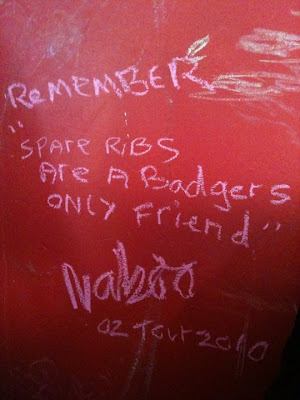 ReMEMBER
"SPARE RiBS
ARe A Badgers
ONLY Friend"
Naboo
02 Tour 2010